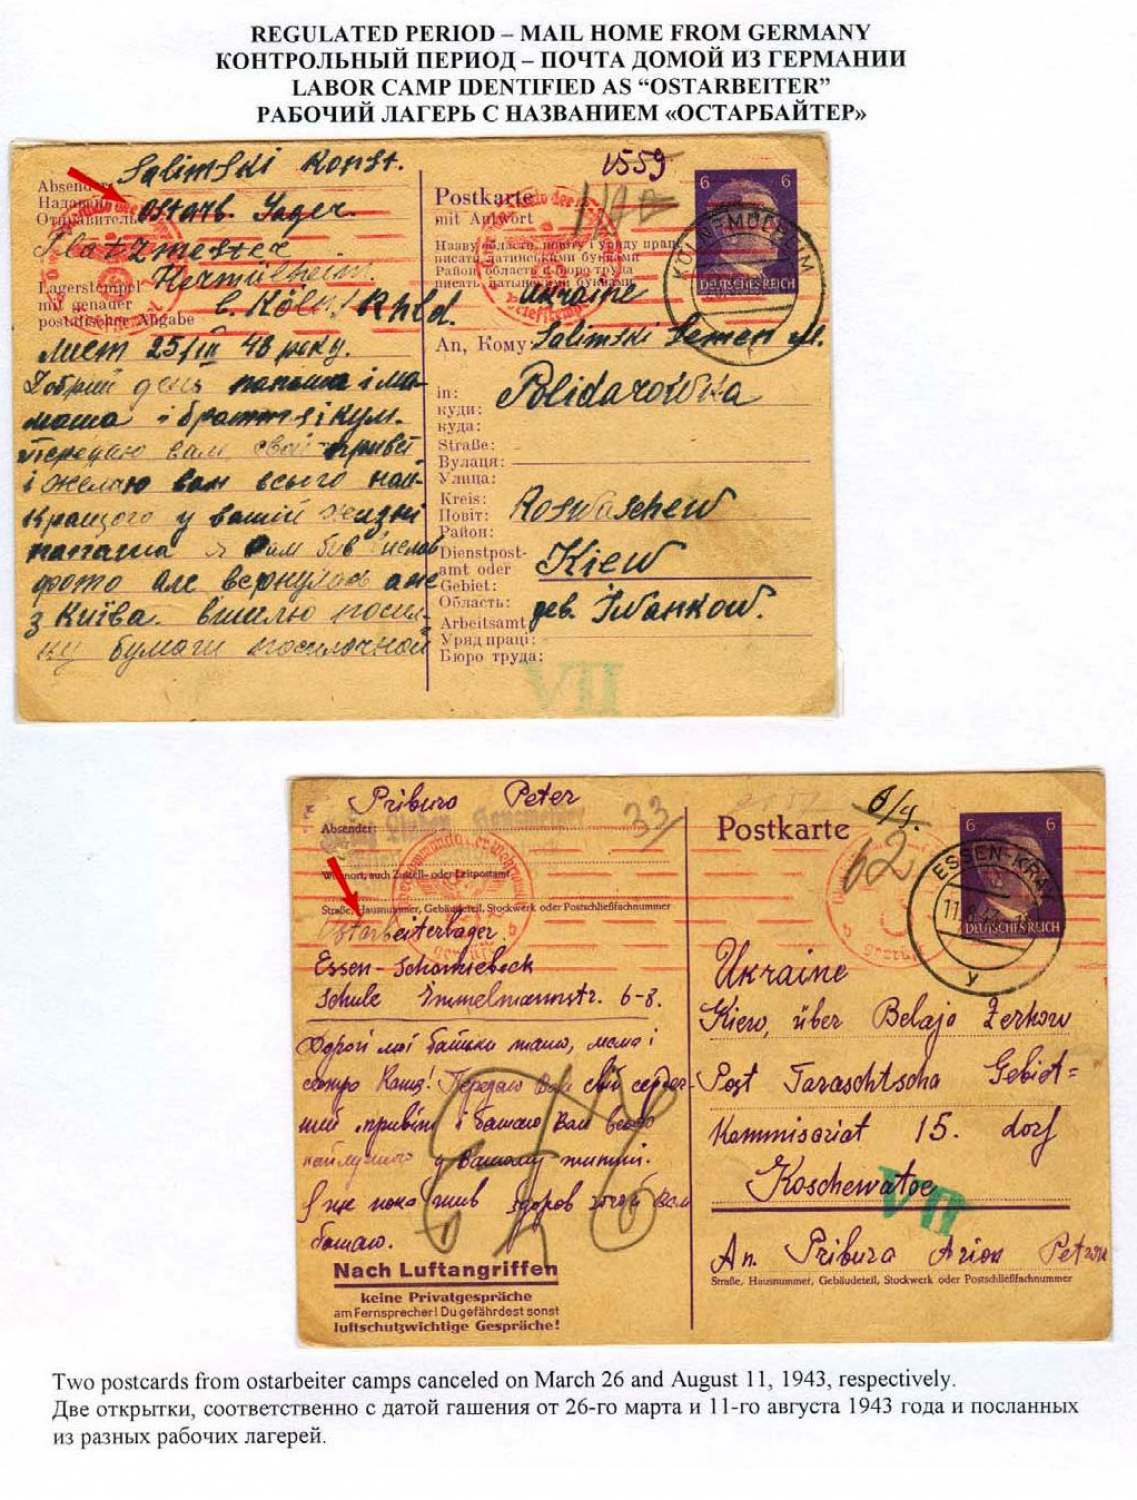 REGULATED PERIOD – MAIL HOME FROM GERMANY
КОНТРОЛЬНЫЙ ПЕРИОД – ПОЧТА ДОМОЙ ИЗ ГЕРМАНИИ
LABOR CAMP IDENTIFIED AS “OSTARBEITER”
РАБОЧИЙ ЛАГЕРЬ С НАЗВАНИЕМ «ОСТАРБАЙТЕР»
Salimski Konst.
Absender:
Надавець
Отправитель
Ostarb. Lager
Platzmester
Hermülheim
Lagerstempel
mit genauer
postalischer Angabe
b. Köln Rhld.
Лист 25/III 43 року.
Добрий день папаша і ма-
маша і брати і кум.
Передаю вам свой привет
і желаю вам всього най-
кращого у вашій жизні
папаша я вам був ислав
фото але вернулось аже
з Київа. вишлю посил-
ку бумаги посилочной
1559
Postkarte
mit Antwort
Назву області, повіту і уряду праці
писати латинськими буквами
Район, область и бюро труда
писать латынскими буквами
6 6
DEUTSCHES REICH
KÖLN-MÜLHEIM
Ukraine
An, Кому: Salimski Semen M.
in:
куди:
куда:
Polidarowka
Straße:
Вулиця:
Улица:
Kreis:
Повіт:
Район:
Roswaschew
Dienstpost-
amt oder
Gebiet:
Область:
Kiew
geb. Iwankow.
Arbeitsamt
Уряд праці:
Бюро труда:
VII
Priburo Peter
Absender:
33
Wohnort, auch Zustell- oder Leitpostamt
Straße, Hausnummer, Gebäudeteil, Stockwerk oder Postschließfachnummer
Ostarbeiterlager
Essen - Schonnebeck
Schule Immelmannstr. 6-8.
Дорогі мої батьки тато, мамо і
сестро Каття! Передаю Вам свій сердеч-
ний привіт і бажаю Вам всього
найлучшого у Вашому життті.
Я ще поки жив здоров чого й Вам
бажаю.
Nach Luftangriffen
keine Privatgespräche
am Fernsprecher! Du gefährdest sonst
luftschutzwichtige Gespräche!
Postkarte
62
6 6
DEUTSCHES REICH
ESSEN-KRAY
11.8.43
y
Ukraine
Kiew, über Belaja Zerkow
Post Taraschtscha Gebiet=
Kommisariat 15. dorf
Koschewatoe
VII
An. Pribura Arion Petrow
Straße, Hausnummer, Gebäudeteil, Stockwerk oder Postschließfachnummer
Two postcards from ostarbeiter camps canceled on March 26 and August 11, 1943, respectively.
Две открытки, соответственно с датой гашения от 26-го марта и 11-го августа 1943 года и посланных
из разных рабочих лагерей.